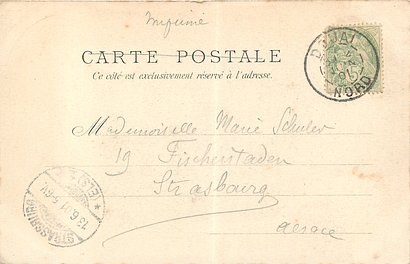 Imprimé
CARTE POSTALE
Ce côté est exclusivement réservé à l'adresse.
DOUAI
NORD
Mademoiselle Marie Schuler
19 Fischerstaden
Strasbourg
Alsace
STRASSBURG
(ELS)
13.6.01.5-6N.